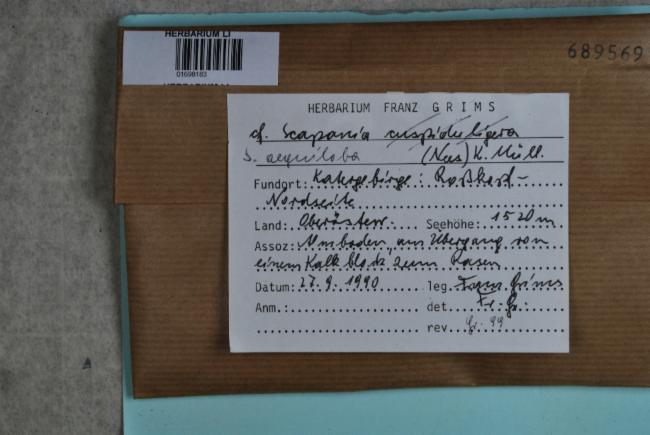 HERBARIUM LI
01698183
689569
HERBARIUM FRANZ GRIMS
cf. Scapania cuspiduligera
S. aequiloba (Nees) K. Müll.
Fundort: Katergebirge: Roßkopf-
Nordseite
Land: Oberösterr. Seehöhe: 1520 m
Assoz: am Übergang von
einem Kalkblock zum Rasen
Datum: 27.9.1990 leg. Franz Grims
Anm.: det. Fr. Gr.
rev. Gr. 99